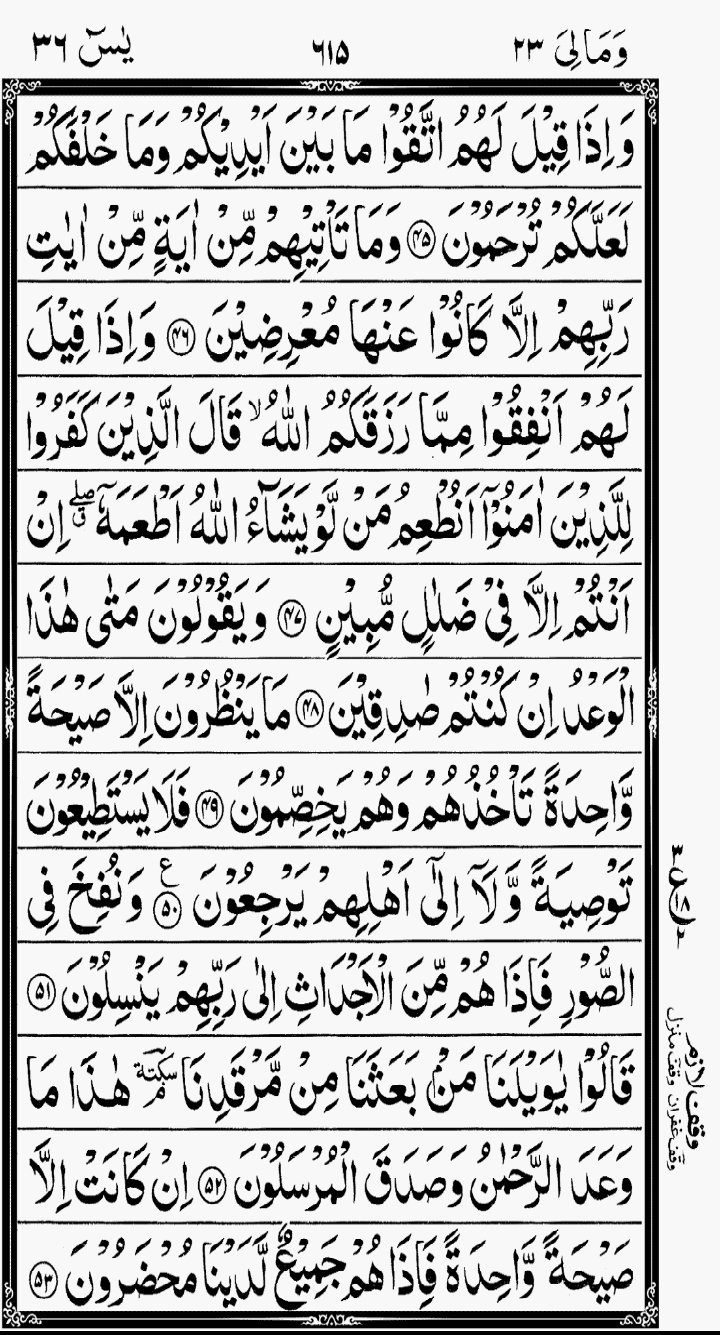 وَمَالِیَ ٢٣ ٦١٥ یٰسٓ ٣٦
وَ اِذَا قِیْلَ لَهُمُ اتَّقُوْا مَا بَیْنَ اَیْدِیْكُمْ وَمَا خَلْفَكُمْ
لَعَلَّكُمْ تُرْحَمُوْنَ ﴿۴۵﴾ وَمَا تَاْتِیْهِمْ مِّنْ اٰیَةٍ مِّنْ اٰیٰتِ
رَبِّهِمْ اِلَّا كَانُوْا عَنْهَا مُعْرِضِیْنَ ﴿۴۶﴾ وَاِذَا قِیْلَ
لَهُمْ اَنْفِقُوْا مِمَّا رَزَقَكُمُ اللّٰهُ ۙ قَالَ الَّذِیْنَ كَفَرُوْا
لِلَّذِیْنَ اٰمَنُوْۤا اَنُطْعِمُ مَنْ لَّوْ یَشَآءُ اللّٰهُ اَطْعَمَهٗۤ ۖۗ اِنْ
اَنْتُمْ اِلَّا فِیْ ضَلٰلٍ مُّبِیْنٍ ﴿۴۷﴾ وَ یَقُوْلُوْنَ مَتٰی هٰذَا
الْوَعْدُ اِنْ كُنْتُمْ صٰدِقِیْنَ ﴿۴۸﴾ مَا یَنْظُرُوْنَ اِلَّا صَیْحَةً
وَّاحِدَةً تَاْخُذُهُمْ وَهُمْ یَخِصِّمُوْنَ ﴿۴۹﴾ فَلَا یَسْتَطِیْعُوْنَ
تَوْصِیَةً وَّلَاۤ اِلٰۤی اَهْلِهِمْ یَرْجِعُوْنَ ﴿۵۰﴾ ع وَنُفِخَ فِی
الصُّوْرِ فَاِذَا هُمْ مِّنَ الْاَجْدَاثِ اِلٰی رَبِّهِمْ یَنْسِلُوْنَ ﴿۵۱﴾
قَالُوْا یٰوَیْلَنَا مَنْۢ بَعَثَنَا مِنْ مَّرْقَدِنَا سكتة ۘ هٰذَا مَا
وَعَدَ الرَّحْمٰنُ وَصَدَقَ الْمُرْسَلُوْنَ ﴿۵۲﴾ اِنْ كَانَتْ اِلَّا
صَیْحَةً وَّاحِدَةً فَاِذَا هُمْ جَمِیْعٌ لَّدَیْنَا مُحْضَرُوْنَ ﴿۵۳﴾
وقف لازم
وقف غفران وقف منزل